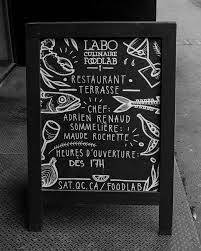 LABO
CULINAIRE
FOODLAB
RESTAURANT
TERRASSE
CHEF:
ADRIEN RENAUD
SOMMELIÈRE:
MAUDE ROCHETTE
HEURES D'OUVERTURE:
DÈS 17H
SAT.QC.CA/FOODLAB